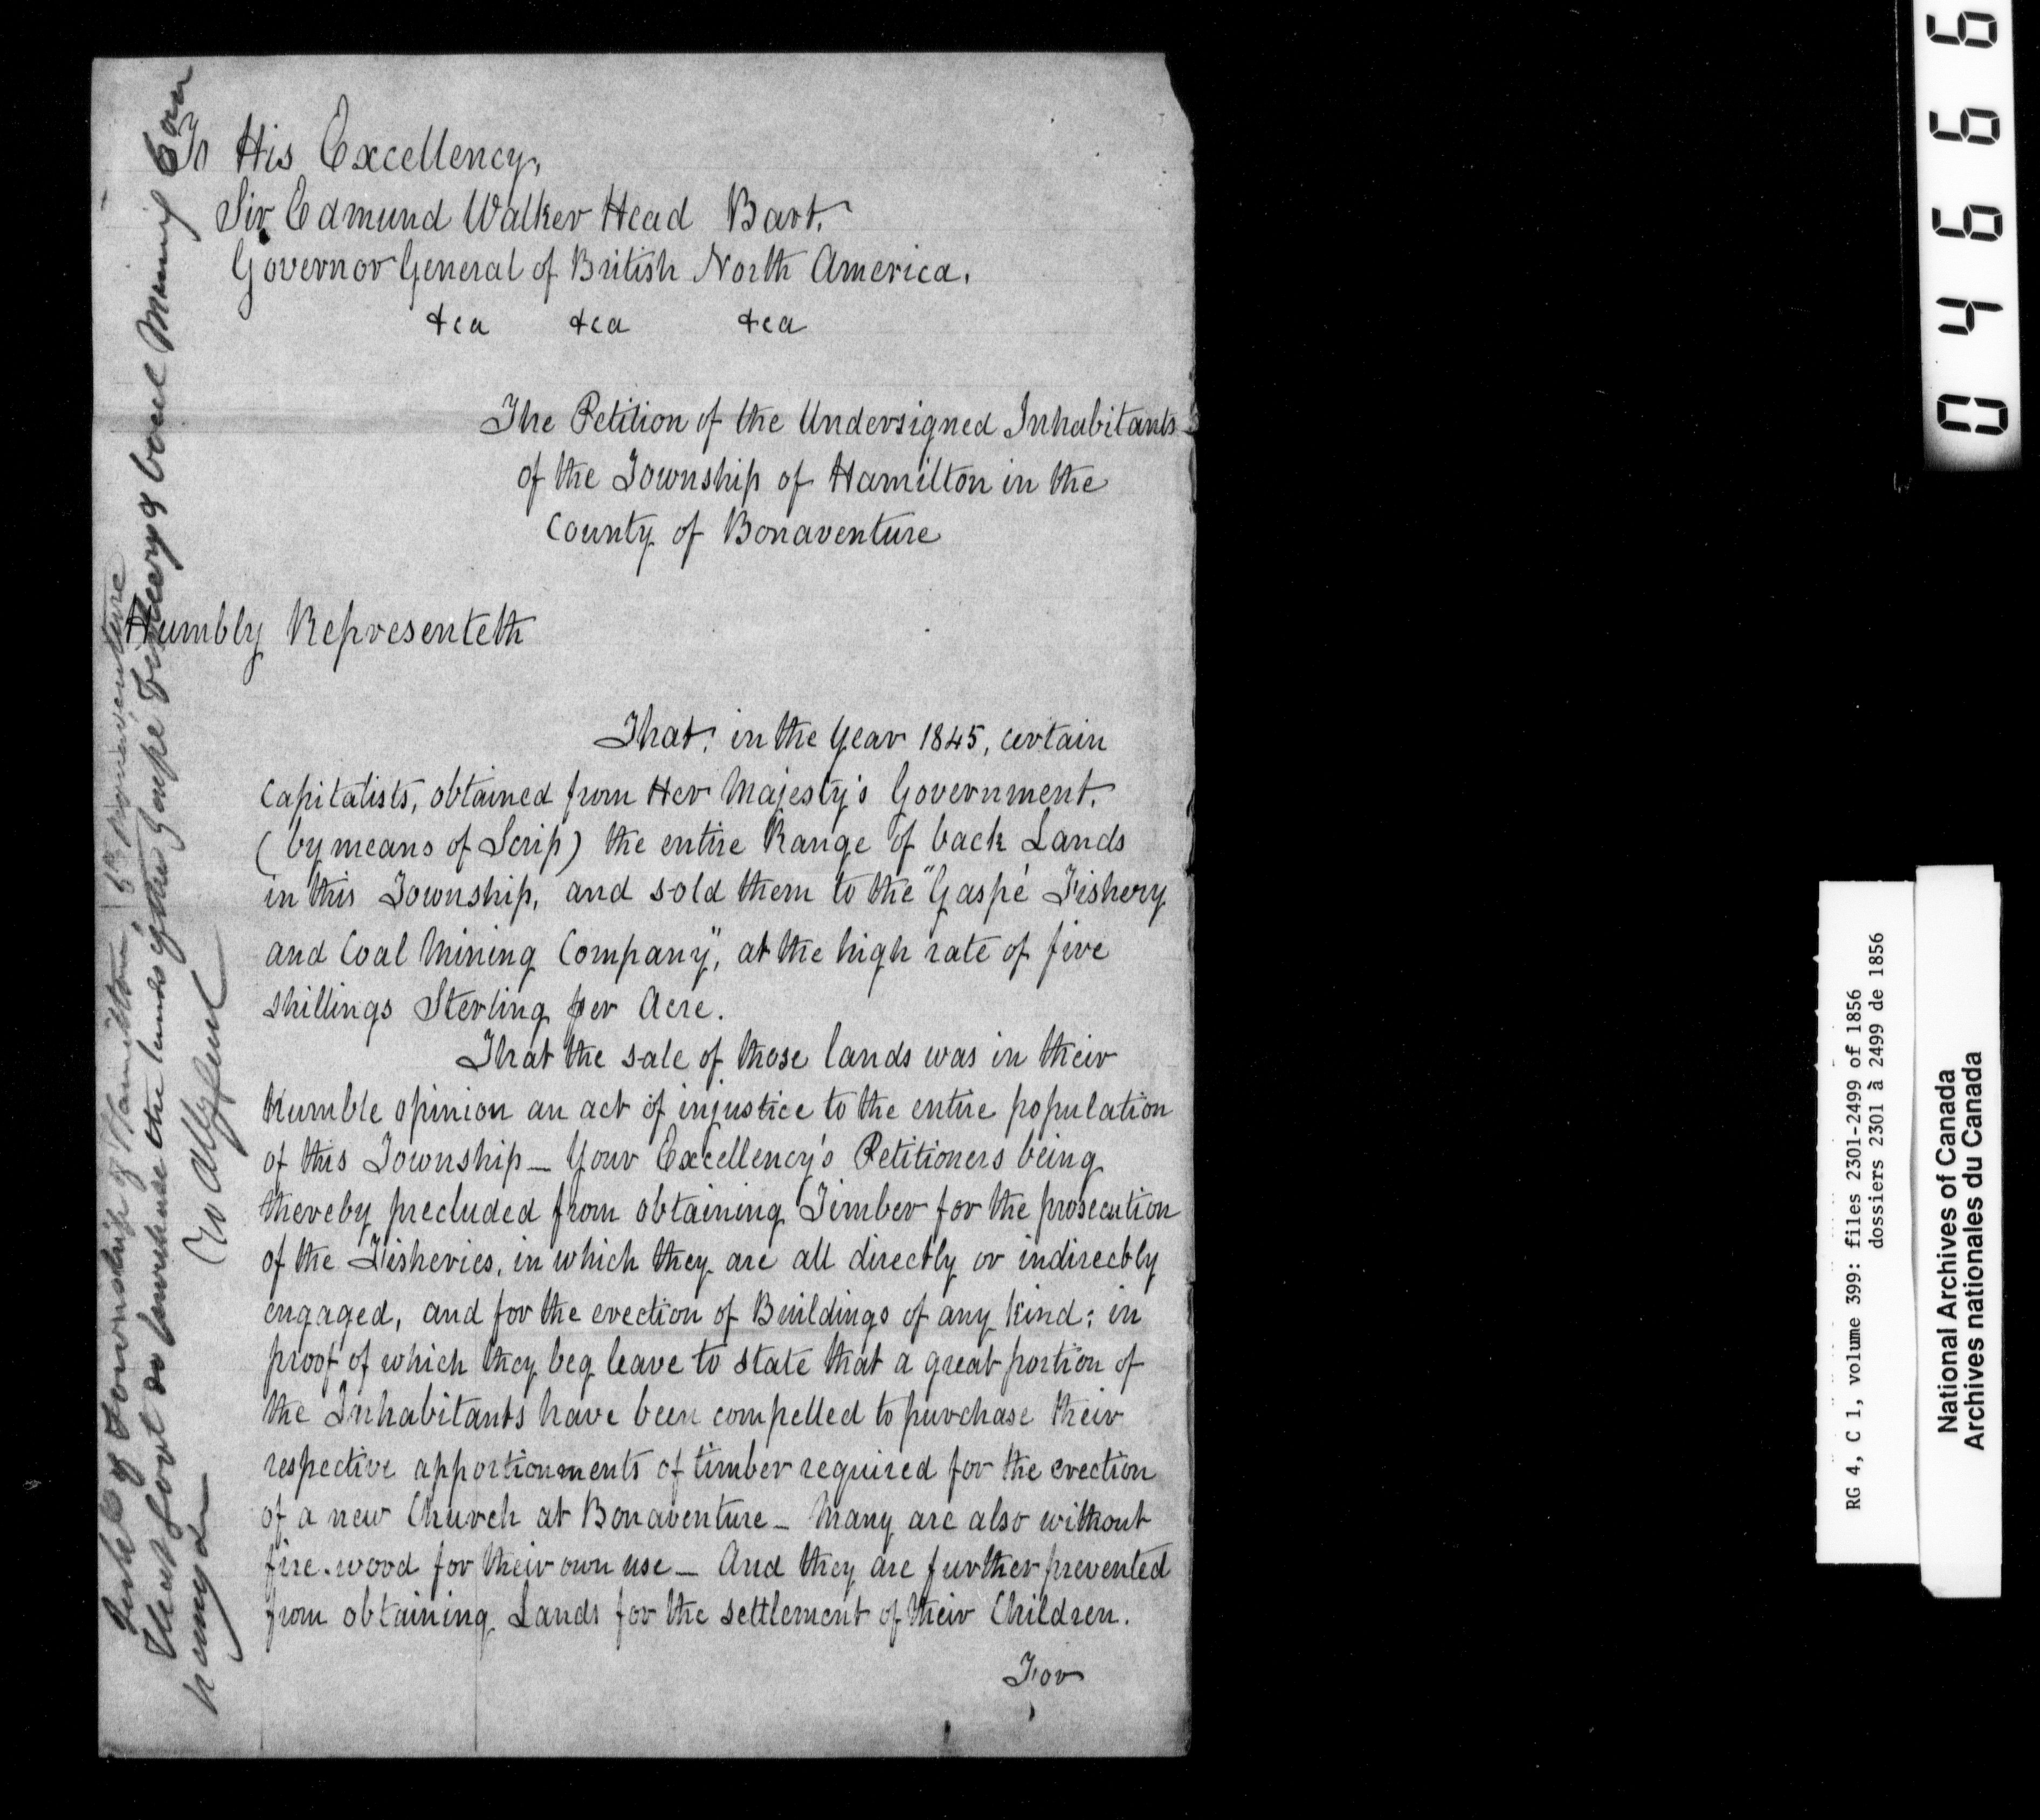 To His Excellency,
Sir Edmund Walker Head Bart.
Governor General of British North America.
&ca &ca &ca
The Petition of the Undersigned Inhabitants
of the Township of Hamilton in the
County of Bonaventure
Humbly Representeth
That, in the year 1845, certain
Capitalists, obtained from Her Majesty's Government,
(by means of Scrip) the entire Range of back Lands
in this Township, and sold them to the "Gaspé Fishery
and Coal Mining Company", at the high rate of five
shillings Sterling per Acre.
That the sale of those lands was in their
humble opinion an act of injustice to the entire population
of this Township _ Your Excellency's Petitioners being
thereby precluded from obtaining Timber for the prosecution
of the Fisheries, in which they are all directly or indirectly
engaged, and for the erection of Buildings of any kind; in
proof of which they beg leave to state that a great portion of
the Inhabitants have been compelled to purchase their
respective apportionments of timber required for the erection
of a new Church at Bonaventure _ Many are also without
fire-wood for their own use _ And they are further prevented
from obtaining Lands for the settlement of their Children.
For
of Township of Hamilton, Co Bonaventure
that Govt do purchase the lands of the Gaspé Fishery & Coal Mining Com
04666
RG 4, C 1, volume 399: files 2301-2499 of 1856
dossiers 2301 à 2499 de 1856
National Archives of Canada
Archives nationales du Canada